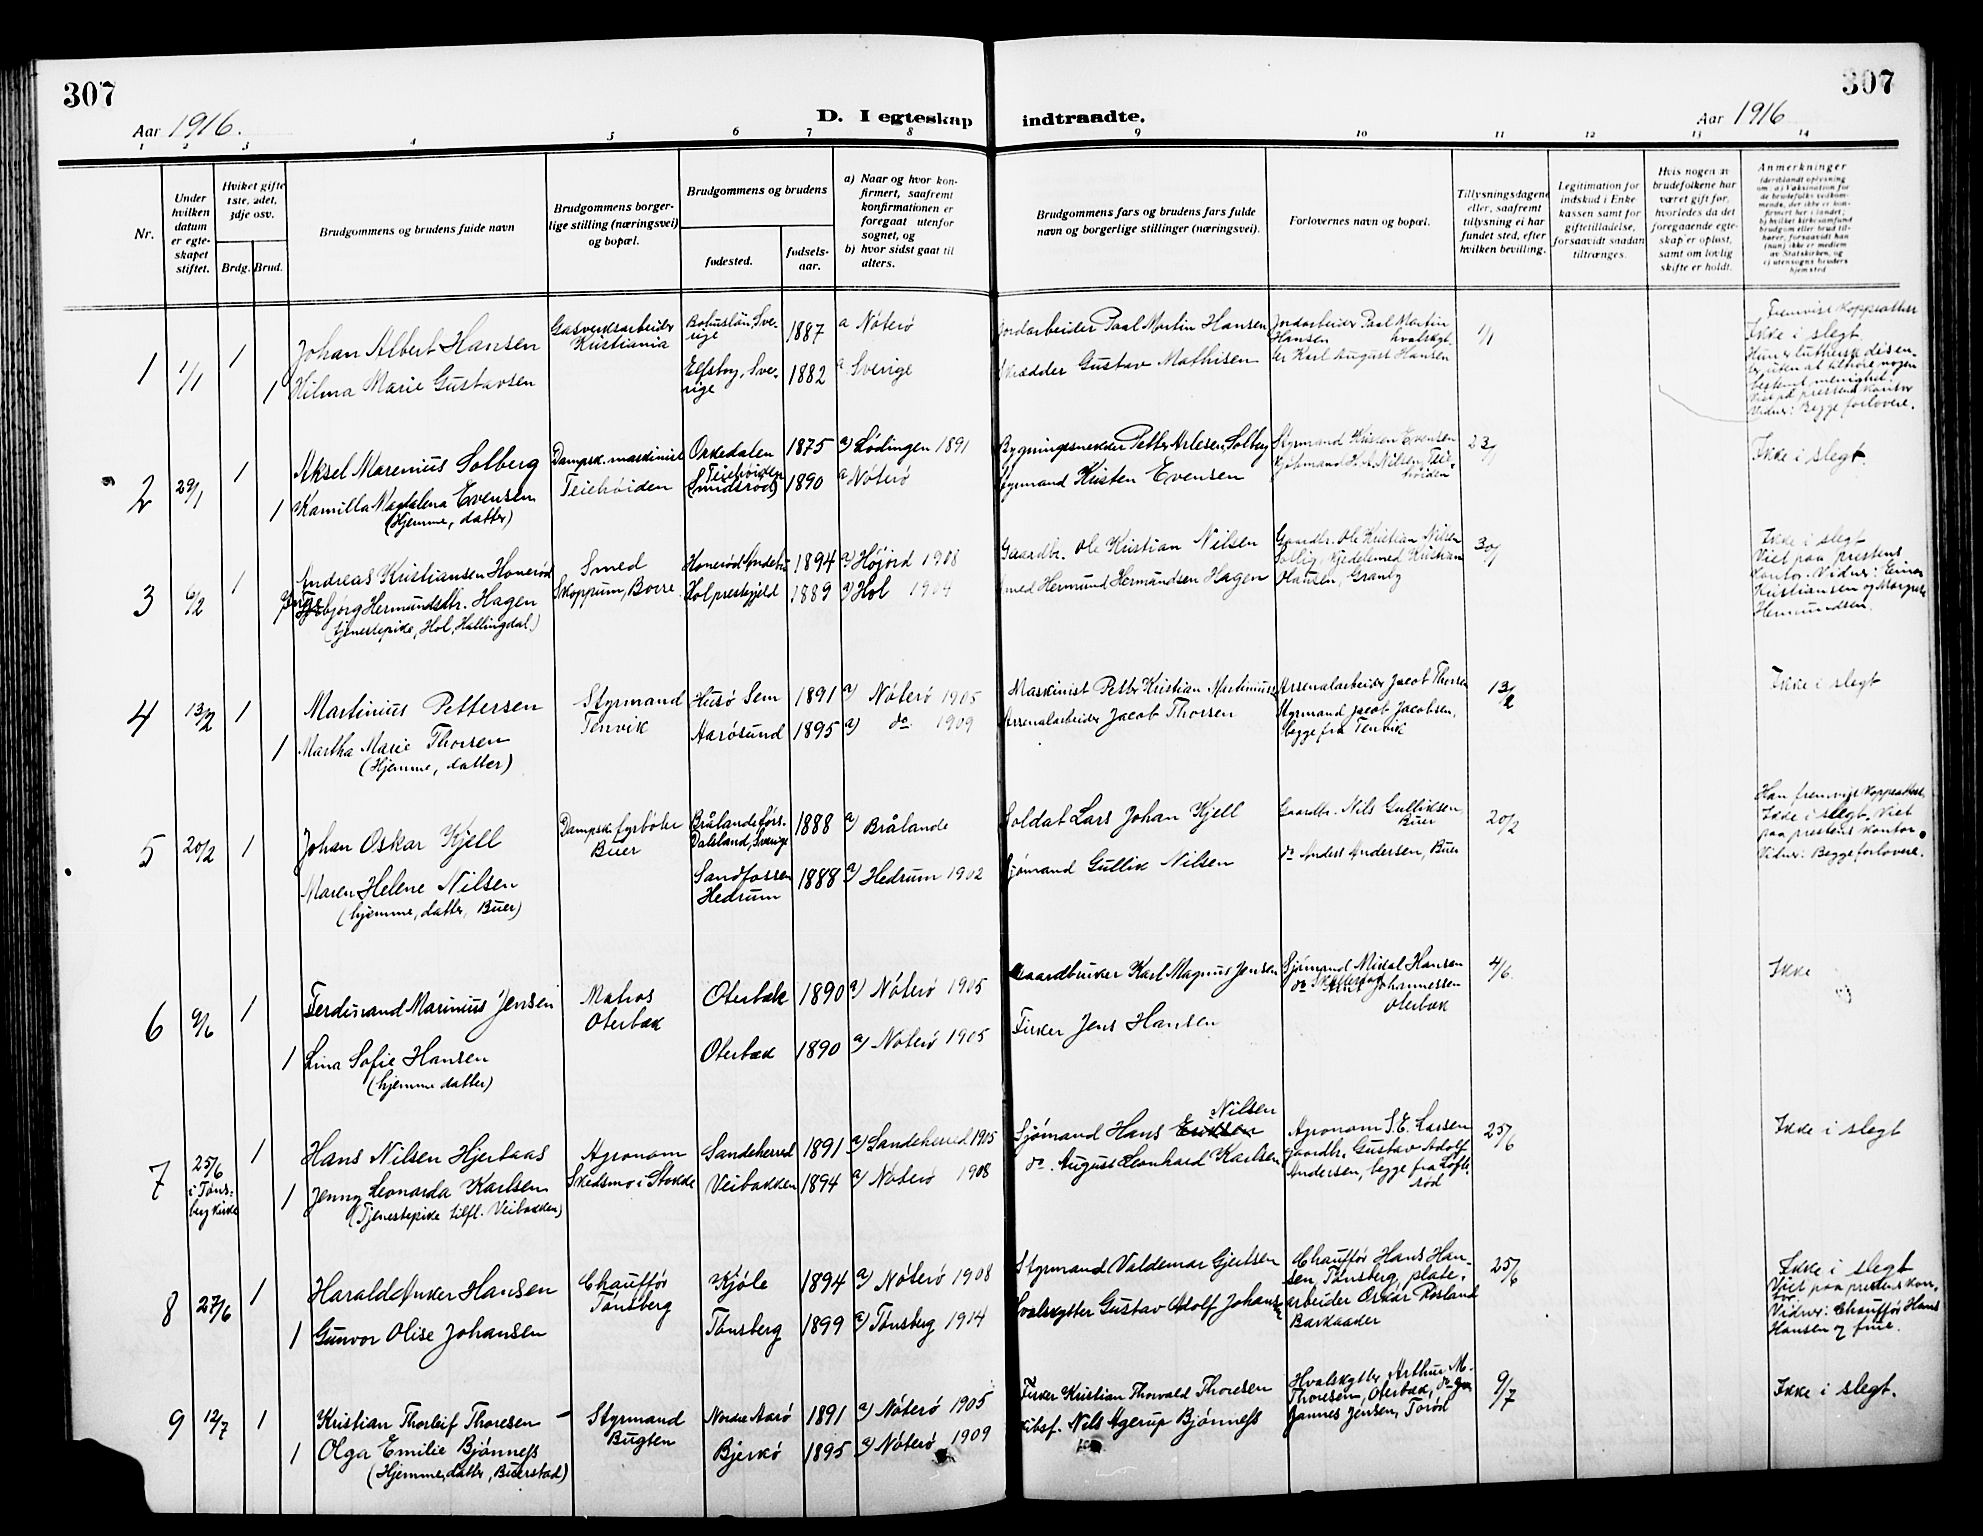 307
307
Aar 1916.
D. I egteskap indtraadte.
Aar 1916
1 2 3 4 5 6 7 8 9 10 11 12 13 14
Nr.
Under hvilken datum er egteskapet stiftet.
Hvilket gifte 1ste, 2det, 3dje osv.
Brdg. Brud.
Brudgommens og brudens fulde navn
Brudgommens borgerlige stilling (næringsvei) og bopæl.
Brudgommens og brudens
fødested.
fødselsaar.
a) Naar og hvor konfirmert, saafremt konfirmationen er foregaat utenfor sognet, og
b) hvor sidst gaat til alters.
Brudgommens fars og brudens fars fulde navn og borgerlige stillinger (næringsvei).
Forlovernes navn og bopæl.
Tillysningsdagene eller, saafremt tillysning ei har fundet sted, efter hvilken bevilling.
Legitimation for indskud i Enkekassen samt for giftetilladelse, forsaavidt saadan tiltrænges.
Hvis nogen av brudefolkene har været gift før, hvorledes da det foregaaende egteskap er opløst, samt om lovlig skifte er holdt.
Anmerkninger
1 1/1 1 Johan Albert Hansen
Gasverksarbeider Kristiania
Bohuslän, Sverige 1887 a Nøterø
Jordarbeider Paal Martin Hansen
Jordarbeider Paal Martin Hansen
1/1
Fremvist koppeattest
Ikke i slegt
1 Hilma Marie Gustavsen
Elfsby, Sverige 1882 a Sverige
Skrædder Gustav Mathisen
hvalskytter Karl August Hansen
bestemt menighet.
Viet på prestens kontor
Vidner: Begge forlovere.
2 29/1 1 Aksel Marenius Solberg
Dampsk. maskinist Teiehøiden
Orkedalen 1875 a) Lødingen 1891
Bygningssnekker Petter Solberg
Styrmand Kristen Evensen
Kjøbmand H. A. Nilsen, Teiehøiden
23/1
Ikke i slegt.
1 Kamilla Magdalena Evensen
(Hjemme, datter)
Teiehøiden (Smidsrød) 1890 a Nøterø
Styrmand Kristen Evensen
3 6/2 1 Andreas Kristiansen Honerød
Smed
Skoppum, Borre
Honerød Andebu 1894 a) Høijord 1908
Gaardbr. Ole Kristian Nilsen
Gaardbr. Ole Kristian Nilsen
Solby, Kjedelsmed Kristian
Hansen, Granly
30/1
Ikke i slegt
Viet paa prestens
kontor. Vidner: Einar
Kristiansen og Margrete
Hermundsen.
Ingebjørg Hermundsdtr. Hagen
(tjenestepike, Hol, Hallingdal)
Hol prestegjeld 1889 a) Hol 1904
Smed Hermund Hermundsen Hagen
4 13/2 1 Martinius Pettersen
Styrmand
Tenvik
Husø Sem 1891 a) Nøterø 1905
Maskinist Petter Kristian Martinius
Arsenalarbeider Jacob Thorsen
Styrmand Jacob Jacobsen,
begge fra Tenvik
13/2
Ikke i slegt
1 Martha Marie Thorsen
(Hjemme, datter)
Aarøsund 1895 a) do. 1909
Arsenalarbeider Jacob Thorsen
5 20/2 1 Johan Oskar Kjell
Dampsk. fyrbøter
Buer
Brålande førs. Dalsland, Sverige 1888 a) Brålande
Soldat Lars Johan Kjell
Gaardbr. Nils Gulliksen, Buer
20/2
Han fremvist koppeattest.
Ikke i slegt. Viet
paa prestens kontor.
Vidner: Begge forlovere.
Maren Helene Nilsen
(hjemme, datter, Buer)
Sandfossen Hedrum 1888 a) Hedrum 1902
Sjømand Gullik Nilsen
do Anders Andersen, Buer
6 9/6 1 Ferdinand Marinius Jensen
Matros
Oterbæk
Oterbæk 1890 a) Nøterø 1905
Gaardbruker Karl Magnus Jensen
Sjømand Mikal Hansen
Johannessen
Oterbæk
4/6.
Ikke
1 Lina Sofie Hansen
(hjemme datter)
Oterbæk 1890 a) Nøterø 1905
Fisker Jens Hansen
7 25/6 i Tønsberg kirke 1 Hans Nilsen Hjertaas
Agronom
Skedsmo i Stokke
Sandeherred 1891 a) Sandeherred 1905
Sjømand Hans Nilsen
Agronom S. E. Larsen
Gaardbr. Gustav Adolf
Andersen, begge fra Lofterød
25/6
Ikke i slegt
1 Jenny Leonarda Karlsen
(Tjenestepike tilfl. Veibakken)
Veibakken 1894 a) Nøterø 1908
do. August Leonhard Karlsen
8 27/6 1 Harald Anker Hansen
Chauffør
Tønsberg
Kjøle 1894 a) Nøterø 1908
Styrmand Valdemar Gjertsen
Chauffør Hans Hansen, Tønsberg, platearbeider Oskar Rosland
Barkaader
25/6
Ikke i slegt
Viet paa prestens kontor
Vidner: Chauffør Hans
Hansen og frue.
1 Gunvor Olise Johansen
Tønsberg 1899 a) Tønsberg 1914
Hvalskytter Gustav Adolf Johansen
9 12/7 1 Kristian Thorleif Thoresen
Styrmand
Bugten
Nordre Aarø 1891 a) Nøterø 1905
Fisker Kristian Thorvald Thoresen
Hvalskytter Arthur M. Thoresen, Oterbæk, do Johannes Jensen, Torød
9/7
Ikke i slegt.
1 Olga Emilie Bjønness
(Hjemme, datter, Buerstad)
Bjerkø 1895 a) Nøterø 1909
Skibsf. Nils Agerup Bjønness